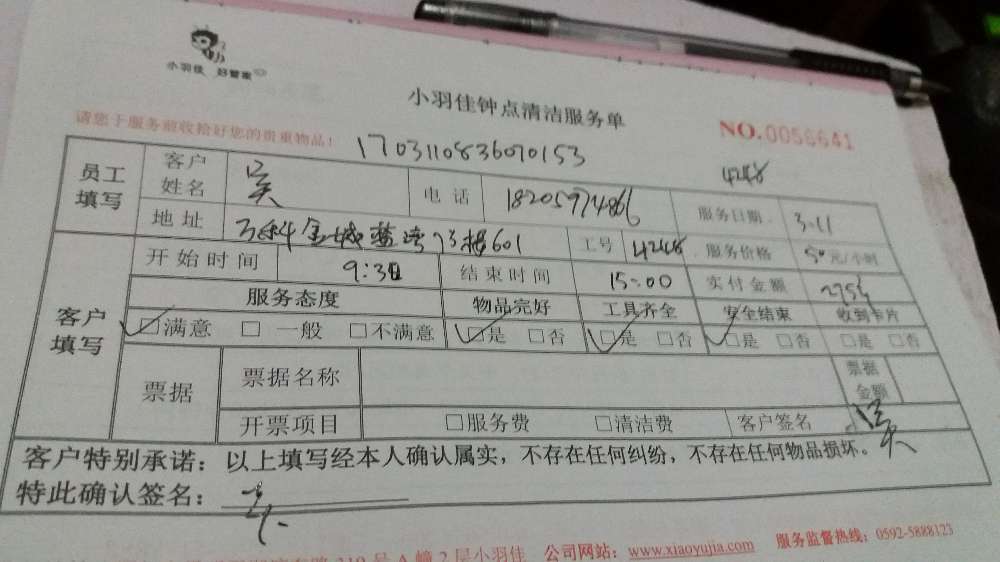 小羽佳 好管家
小羽佳钟点清洁服务单
请您于服务前收拾好您的贵重物品！
NO.0056641
1703110836070153
4248
员工填写 客户姓名 吴 电话 18205974866 服务日期 3-11
地址 万科金域蓝湾 601 工号 4248 服务价格 50元/小时
客户填写 开始时间 9:30 结束时间 15:00 实付金额 275
服务态度 物品完好 工具齐全 安全结束 收到卡片
□满意 □一般 □不满意 □是 □否 □是 □否 □是 □否 □是 □否
票据 票据名称 票据金额
开票项目 □服务费 □清洁费 客户签名 吴
客户特别承诺：以上填写经本人确认属实，不存在任何纠纷，不存在任何物品损坏。
特此确认签名：
号A幢2层小羽佳 公司网站：www.xiaoyujia.com 服务监督热线：0592-5888123